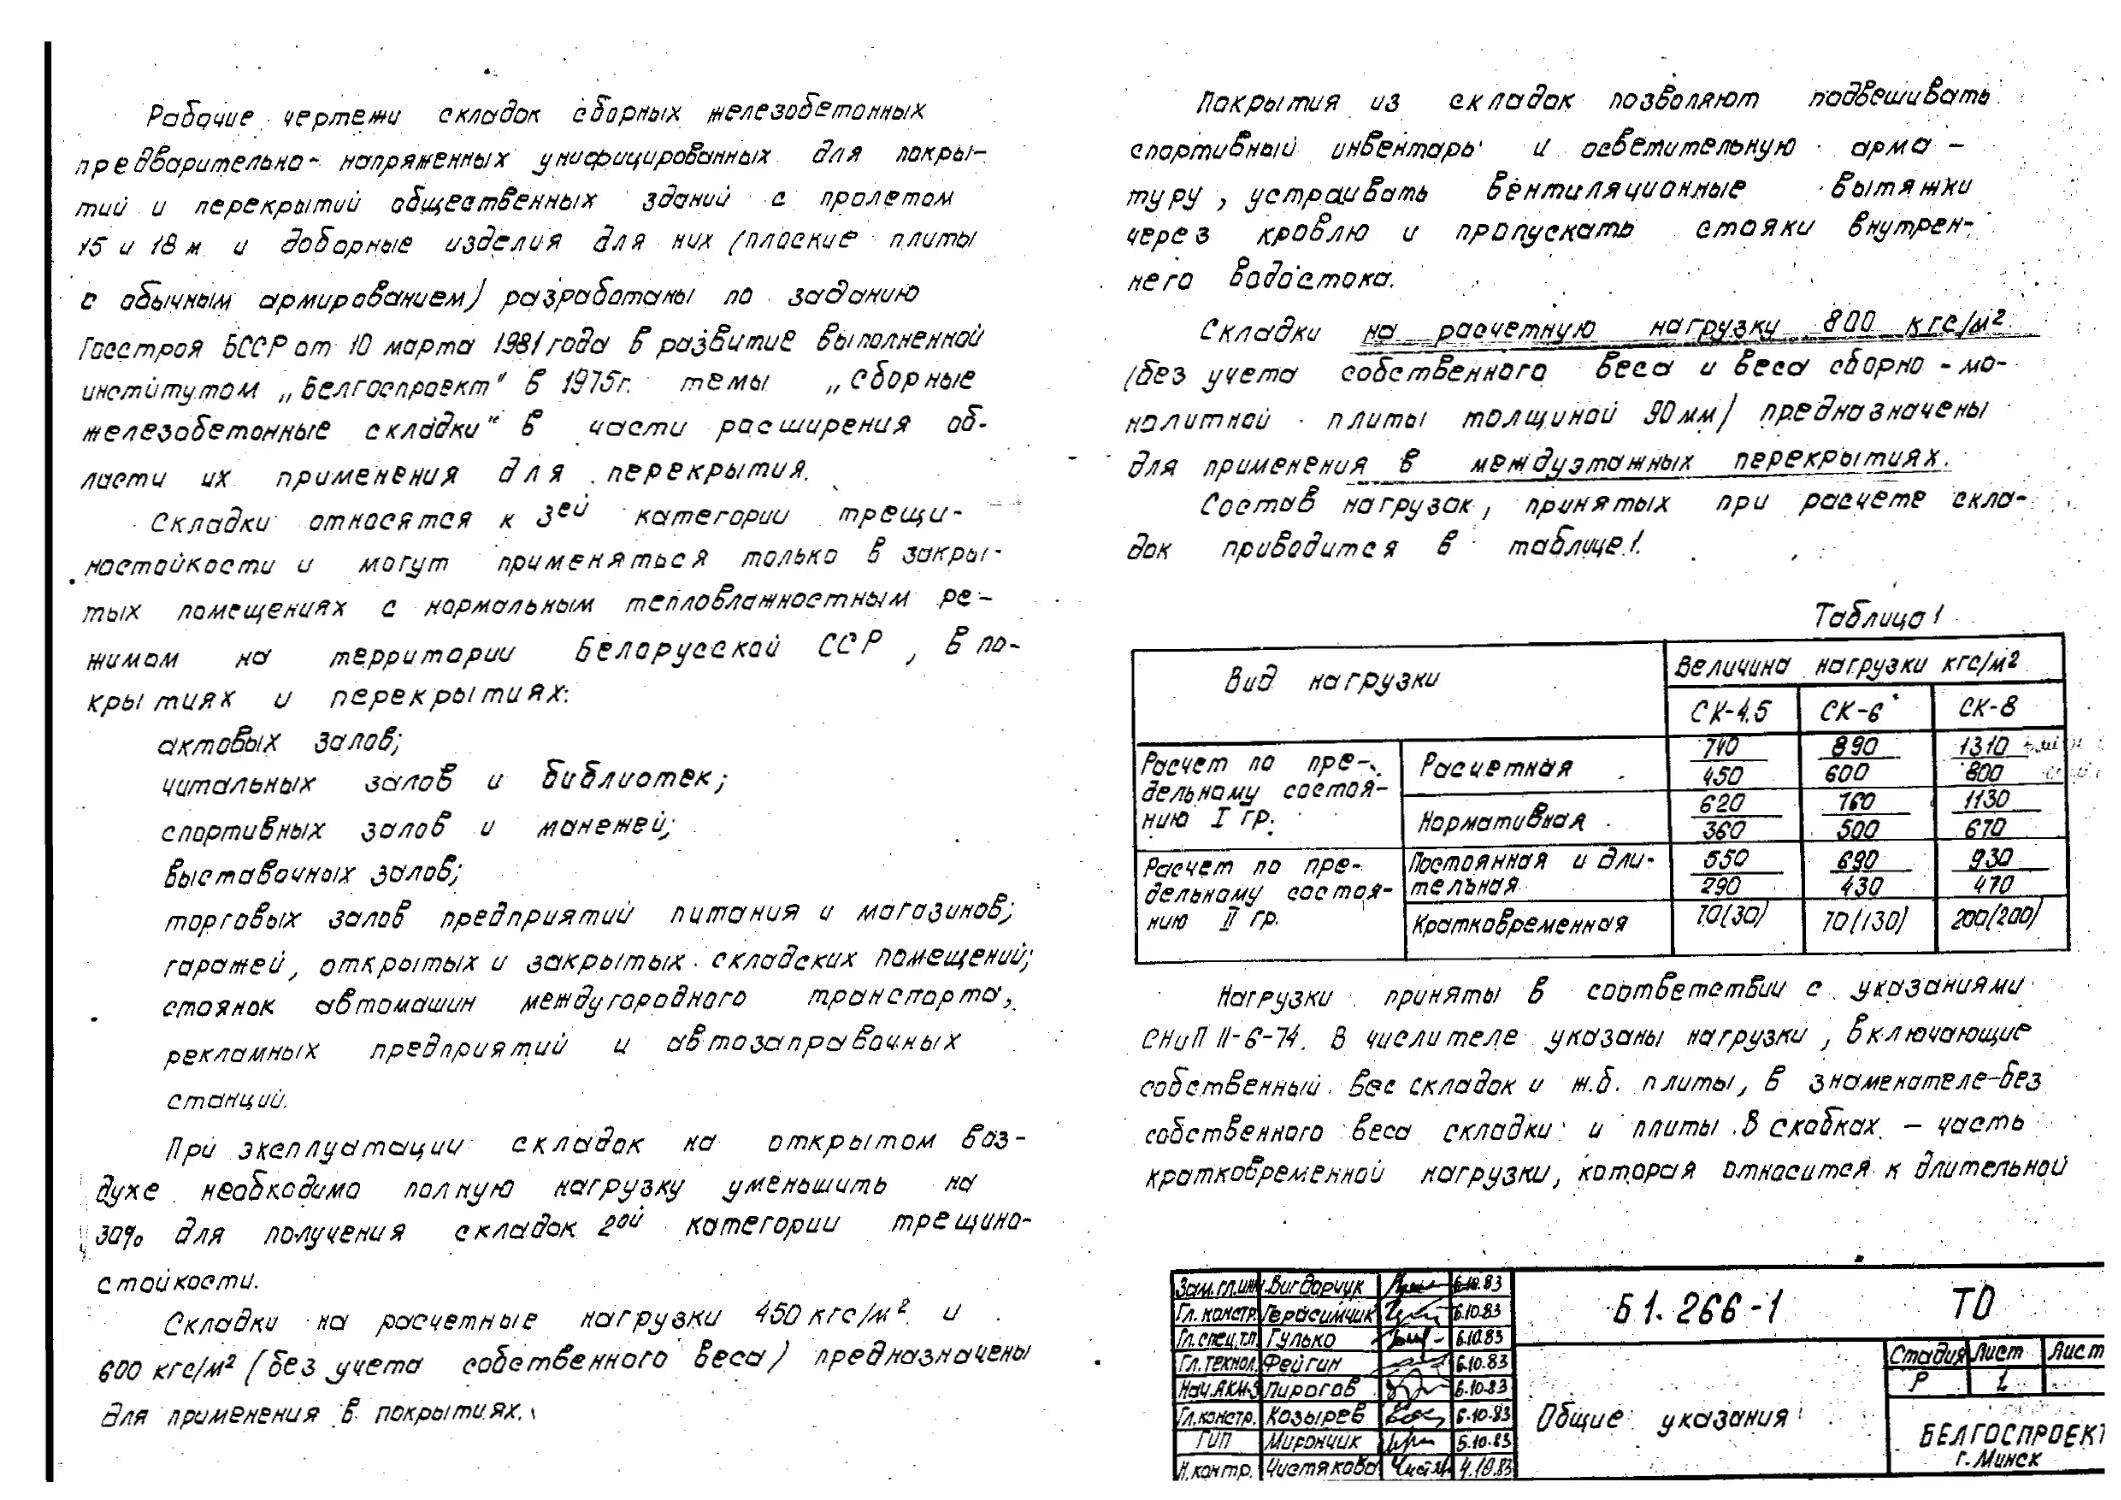 Рабочие чертежи складок сборных железобетонных
предварительно- напряженных унифицированных для покры-
тий и перекрытий общественных зданий с пролетом
15 и 18 м и доборные изделия для них (плоские плиты
с обычным армированием) разработаны по заданию
Госстроя БССР от 10 марта 1981 года в развитие выполненной
институтом „Белгоспроект" в 1975г. темы „Сборные
железобетонные складки" в части расширения об-
ласти их применения для перекрытия.
Складки относятся к 3ей категории трещи-
ностойкости и могут применяться только в закры-
тых помещениях с нормальным тепловлажностным ре-
жимом на территории Белорусской ССР, в по-
крытиях и перекрытиях:
актовых залов;
читальных залов и библиотек;
спортивных залов и манежей;
выставочных залов;
торговых залов предприятий питания и магазинов;
гаражей, открытых и закрытых складских помещений;
стоянок автомашин междугородного транспорта,
рекламных предприятий и автозаправочных
станций.
При эксплуатации складок на открытом воз-
духе необходимо полную нагрузку уменьшить на
30% для получения складок 2ой категории трещино-
стойкости.
Складки на расчетные нагрузки 450 кгс/м² и
600 кгс/м² (без учета собственного веса) предназначены
для применения в покрытиях.
Покрытия из складок позволяют подвешивать
спортивный инвентарь и осветительную арма-
туру, устраивать вентиляционные вытяжки
через кровлю и пропускать стояки внутрен-
него водостока.
Складки на расчетную нагрузку 800 кгс/м²
(без учета собственного веса и веса сборно-мо-
нолитной плиты толщиной 90 мм) предназначены
для применения в междуэтажных перекрытиях.
Состав нагрузок, принятых при расчете скла-
док приводится в таблице 1.
Таблица 1
Вид нагрузки Величина нагрузки кгс/м²
СК-4,5 СК-6 СК-8
Расчет по пре-
дельному состоя-
нию I гр.
Расчетная 740 890 1310
450 600 800
Нормативная 620 760 1130
360 500 670
Расчет по пре-
дельному состоя-
нию II гр.
Постоянная и дли-
тельная
550 690 930
290 430 470
Кратковременная 70(30) 70(130) 200(200)
Нагрузки приняты в соответствии с указаниями
СНиП II-6-74. В числителе указаны нагрузки, включающие
собственный вес складок и ж.б. плиты, в знаменателе-без
собственного веса складки и плиты. В скобках - часть
кратковременной нагрузки, которая относится к длительной
Зам.гл.инж Вигдорчик 6.10.83
Гл. констр. Герасимчик 6.10.83
Гл.спец.т.п. Гулько 6.10.83
Гл.технол. Фейгин 6.10.83
Нач.АКМ-3 Пирогов 6.10.83
Гл.констр. Козырев 6.10.83
ГИП Мирончик 5.10.83
Н.контр. Чистякова 4.10.83
Б1.266-1 ТО
Общие указания
Стадия Лист Лист
Р 1
БЕЛГОСПРОЕКТ
г. Минск